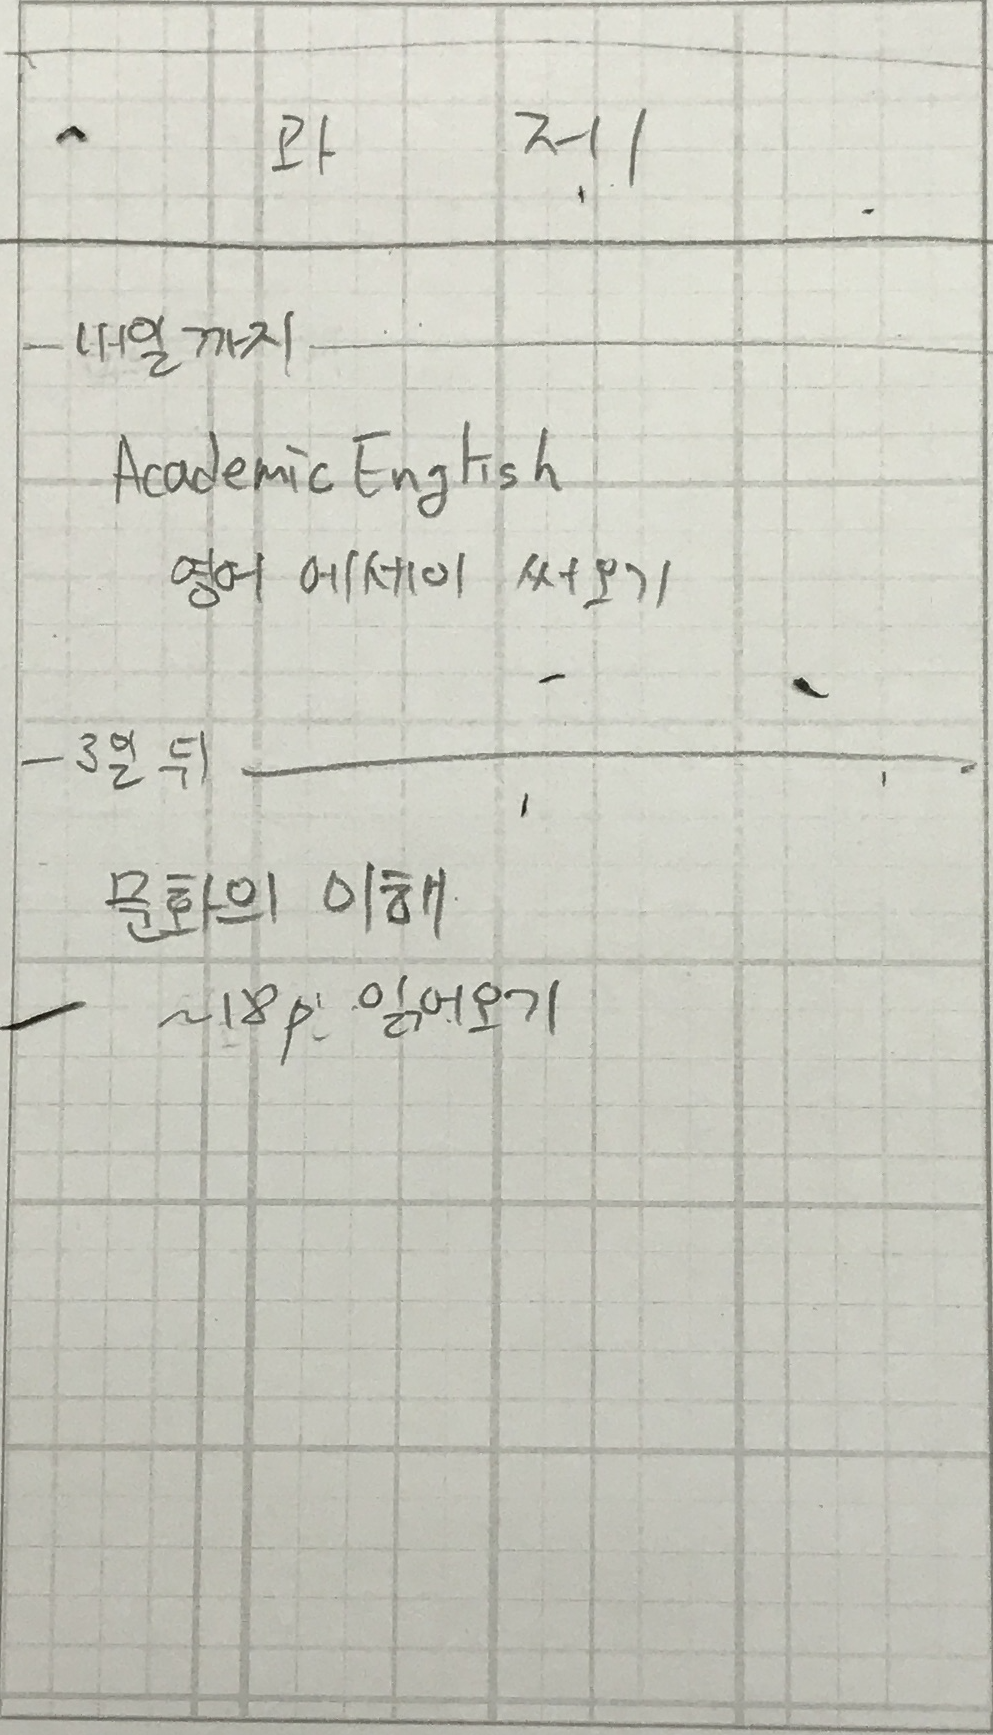 과 제
내일까지
Academic English
영어 에세이 써오기
3일 뒤
문화의 이해
~18p. 읽어오기